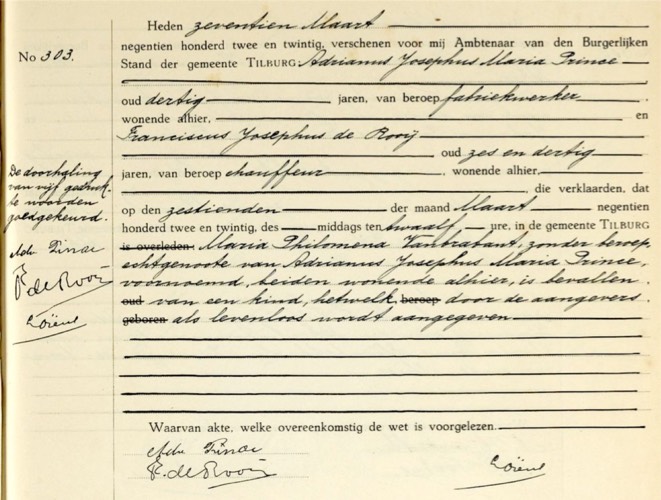 No 303.
Heden zeventien Maart
negentien honderd twee en twintig, verschenen voor mij Ambtenaar van den Burgerlijken
Stand der gemeente TILBURG Adrianus Josephus Maria Prince
oud dertig jaren, van beroep fabriekwerker,
wonende alhier, en
Franciscus Josephus de Rooij
, oud zes en dertig
jaren, van beroep chauffeur, wonende alhier,
, die verklaarden, dat
op den zestienden der maand Maart negentien
honderd twee en twintig, des middags ten twaalf ure, in de gemeente TILBURG
is overleden: Maria Philomena Vanbrabant, zonder beroep,
echtgenoote van Adrianus Josephus Maria Prince,
voornoemd, beiden wonende alhier, is bevallen
oud van een kind, hetwelk, beroep door de aangevers
geboren als levenloos wordt aangegeven
Waarvan akte, welke overeenkomstig de wet is voorgelezen.
F. de Rooij
De doorhaling
van vijf gedruk-
te woorden
goedgekeurd.
F. de Rooij